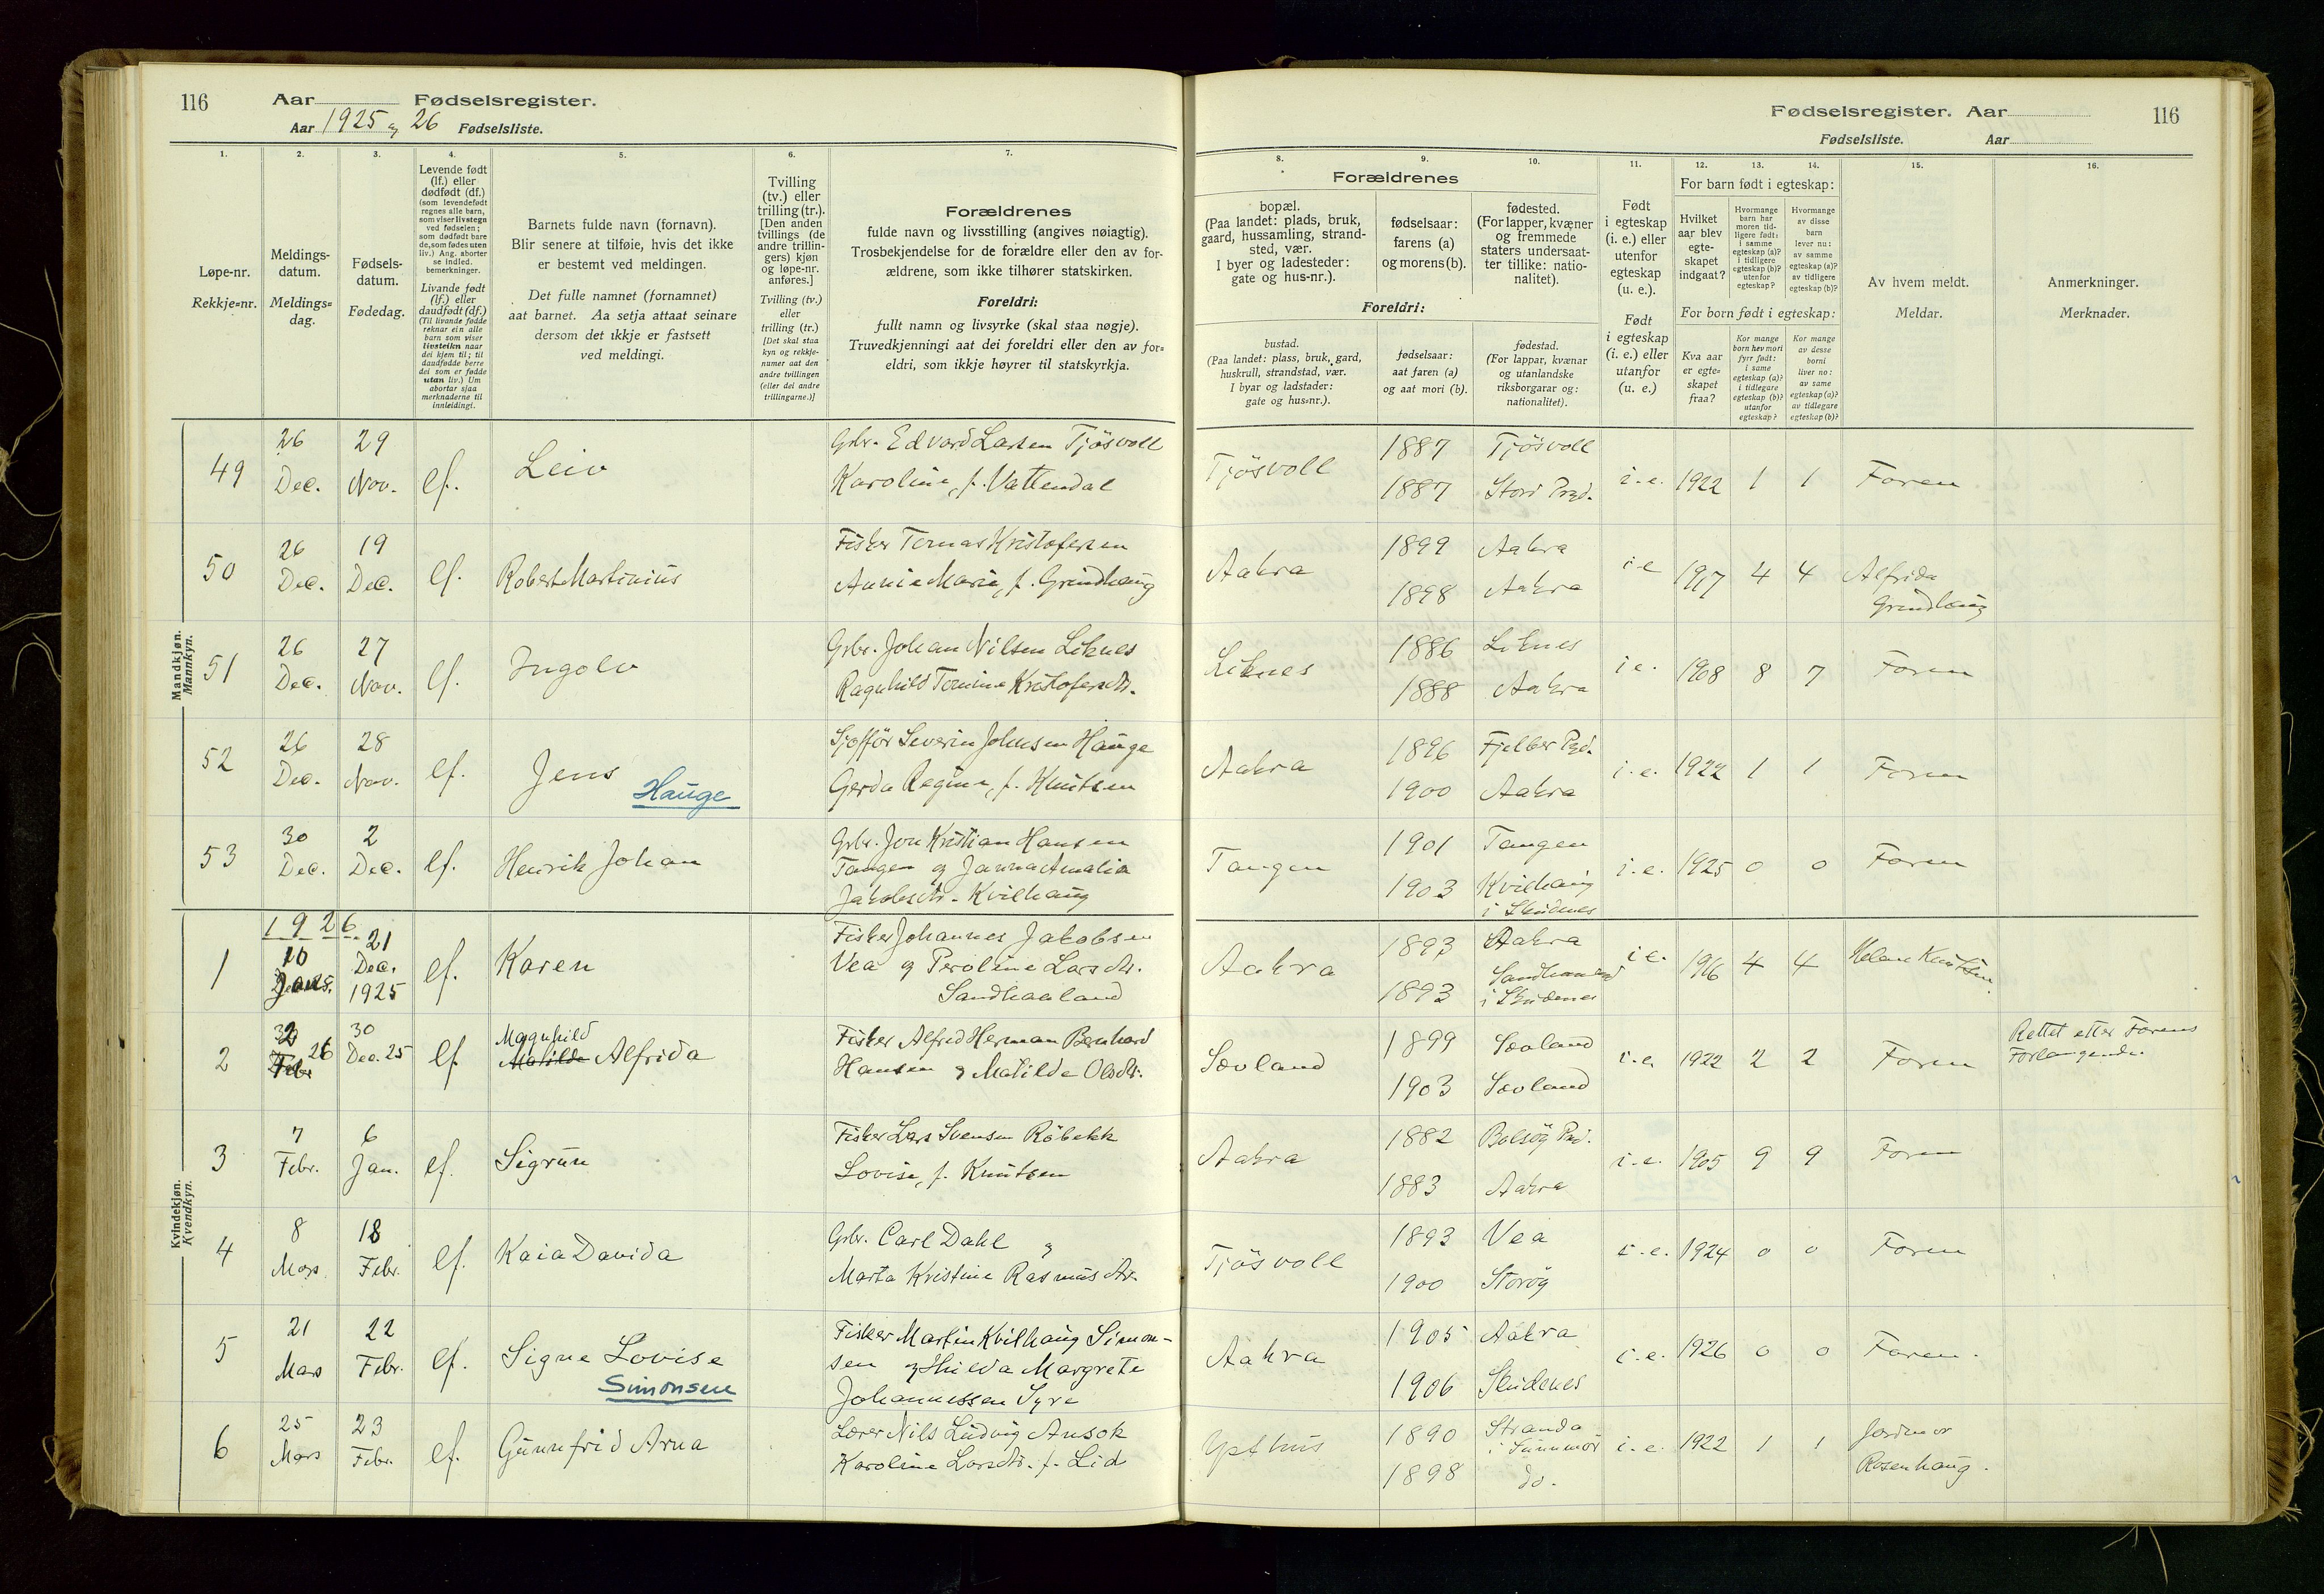 116 Aar Fødselsregister.
Aar 1925 og 26 Fødselsliste.
Fødselsregister. Aar 116
Fødselsliste. Aar
1.
Løpe-nr.
Rekkje=nr.
2.
Meldings-
datum.
Meldings=
dag.
3.
Fødsels-
datum.
Fødedag.
4.
Levende født
(lf.) eller
dødfødt (df.)
(som levendefødt
regnes alle barn,
som viser livstegn
ved fødselen;
som dødfødt bare
de, som fødes uten
liv.) Ang. aborter
se indled.
bemerkninger.
Livande født
(lf.) eller
daudfødt (df.)
(Til livande fødde
reknar ein alle
barn som viser
livsteikn naar
dei kjem til; til
daudfødde berre
dei som er fødde
utan liv.) Um
abortar sjaa
merknaderne til
innleidingi.
5.
Barnets fulde navn (fornavn).
Blir senere at tilføie, hvis det ikke
er bestemt ved meldingen.
Det fulle namnet (fornamnet)
aat barnet. Aa setja attaat seinare
dersom det ikkje er fastsett
ved meldingi.
6.
Tvilling
(tv.) eller
trilling (tr.).
[Den anden
tvillings (de
andre trillin-
gers) kjøn
og løpe-nr.
anføres.]
Tvilling (tv.)
eller
trilling (tr.)
[Det skal staa
kyn og rekkje-
numer aat den
andre tvillingen
(eller dei andre
trillingarne.)]
7.
Forældrenes
fulde navn og livsstilling (angives nøiagtig).
Trosbekjendelse for de forældre eller den av for-
ældrene, som ikke tilhører statskirken.
Foreldri:
fullt namn og livsyrke (skal staa nøgje).
Truvedkjenningi aat dei foreldri eller den av for=
eldri, som ikkje høyrer til statskyrkja.
Forældrenes
8.
bopæl.
(Paa landet: plads, bruk,
gaard, hussamling, strand-
sted, vær.
I byer og ladesteder:
gate og hus-nr.).
9.
fødselsaar:
farens (a)
og morens (b).
10.
fødested.
(For lapper, kvæner
og fremmede
staters undersaat-
ter tillike: natio-
nalitet).
Foreldri:
bustad.
(Paa landet: plass, bruk, gard,
huskrull, strandstad, vær.
I byar og ladstader:
gate og hus=nr.).
fødselsaar:
aat faren (a)
og aat mori (b).
fødestad.
(For lappar, kvænar
og utanlandske
riksborgarar og:
nationalitet).
11.
Født
i egteskap
(i. e.) eller
utenfor
egteskap
(u. e.).
Født
i egteskap
(i. e.) eller
utanfor
(u. e.)
12. 13. 14.
For barn født i egteskap:
Hvilket
aar blev
egte-
skapet
indgaat?
Hvormange
barn har
moren tid-
ligere født:
i samme
egteskap (a)?
i tidligere
egteskap (b)?
utenfor
egteskap?
Hvormange
av disse
barn
lever nu:
av samme
egteskap (a)?
av tidligere
egteskap (b)?
For born født i egteskap:
Kva aar
er egte=
skapet
fraa?
Kor mange
born hev mori
fyrr født:
i same
egteskap (a)?
i tidlegare
egteskap (b)?
utanfor
egteskap?
Kor mange
av desse
borni
liver no:
av same
egteskap (a)?
av tidlegare
egteskap (b)?
15.
Av hvem meldt.
Meldar.
16.
Anmerkninger.
Merknader.
Mandkjøn.
Mannkyn.
49 26 Dec. 29 Nov. lf. Leiv
Gbr. Edvard Larsen Tjösvoll
Karoline, f. Vattendal
Tjösvoll 1887 Tjösvoll
1887 Stord Prgd. i.e. 1922 1 1 Faren
50 26 Dec. 19 Dec. lf. Robert Martinius
Fisker Tomas Kristofersen
Annie Marie, f. Grindhaug
Aakra 1899 Aakra
1898 Aakra i.e 1917 4 4 Alfrida
Grindhaug
51 26 Dec. 27 Nov. lf. Ingolv
Gbr. Johan Nilsen Liknes
Ragnhild Tomine Kristofersdtr.
Liknes 1886 Liknes
1888 Aakra i.e. 1908 8 7 Faren
52 26 Dec. 28 Nov. lf. Jens
Hauge
Sjofför Severin Johnsen Hauge
Gerda Regine, f. Knutsen
Aakra 1896 Fjelber Pgd.
1900 Aakra i.e. 1922 1 1 Faren
53 30 Dec. 2 Dec. lf. Henrik Johan
Gbr. Jon Kristian Hansen
Tangen og Janna Amalia
Jakobsdtr. Kvilhaug
Tangen 1901 Tangen
1903 Kvilhaug
i Skudenes i.e. 1925 0 0 Faren
Kvindekjøn.
Kvendkyn.
1926.
1 10 Jan. 21 Dec. 1925 lf. Karen
Fisker Johannes Jakobsen
Vea og Peroline Larsdtr.
Sandhaaland
Aakra 1893 Aakra
1893 Sandhaaland
i Skudenes i.e. 1916 4 4 Helene Knutsen.
2 2 Febr 26 30 Dec. 25 lf. Magnhild
Matilde Alfrida
Fisker Alfred Herman Bernhard
Hansen og Matilde Olsdtr.
Sævland 1899 Sævland
1903 Sævland i.e. 1922 2 2 Faren Rettet etter Farens
Forlangende.
3 7 Febr. 6 Jan. lf. Sigrun
Fisker Lars Svensen Röbekk
Lovise, f. Knutsen
Aakra 1882 Bolsöy Pgd.
1883 Aakra i.e. 1905 9 9 Faren
4 8 Mars 18 Febr. lf. Kaia Davida
Gbr. Carl Dahl og
Marta Kristine Rasmusdtr.
Tjösvoll 1893 Vea
1900 Storöy i.e. 1924 0 0 Faren
5 21 Mars 22 Febr. lf. Signe Lovise
Simonsen
Fisker Martin Kvilhaug Simon-
sen og Hilda Margrete
Johannessen Syre
Aakra 1905 Aakra
1906 Skudenes i.e. 1926 0 0 Faren.
6 25 Mars 23 Febr. lf. Gunnfrid Arna
Lærer Nils Ludvig Ansok
Karoline Larsdtr. f. Lid
1890 Stranda
i Sunnmör
1898 do. i.e. 1922 1 1 Jordmor
Rosenhaug.